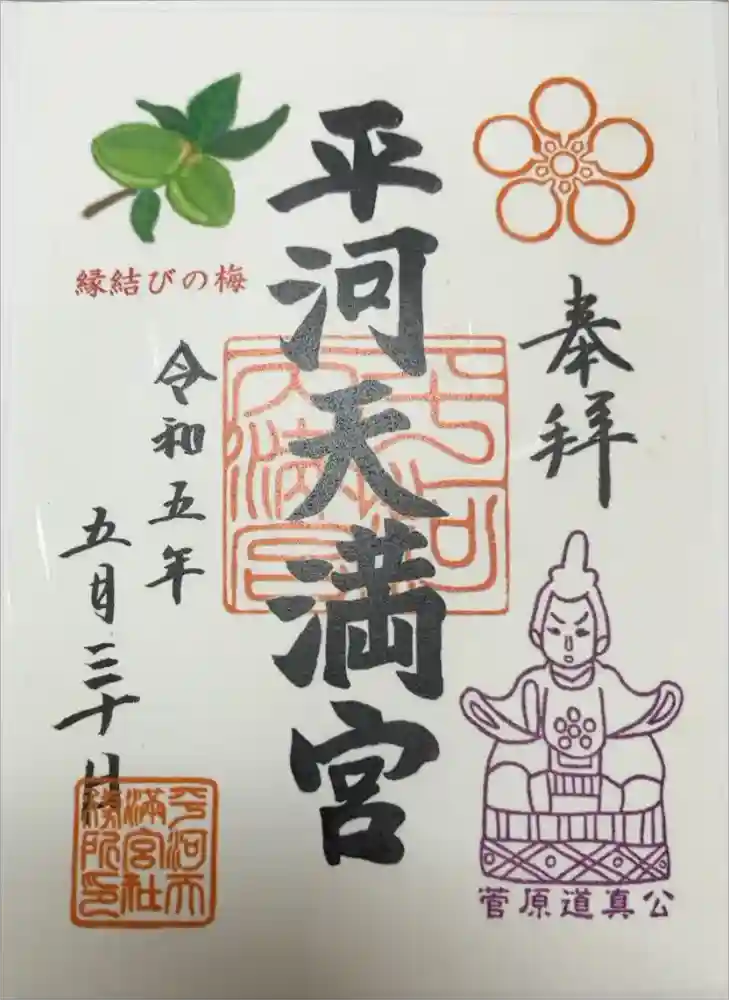 奉拝
平河天満宮
平河天満宮
縁結びの梅
令和五年
五月三十日
菅原道真公
平河天
満宮社
務所印